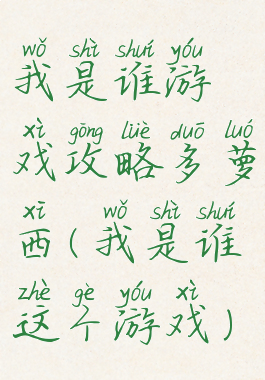 wǒ shì shuí yóu
我是谁游
xì gōng lüè duō luó
戏攻略多萝
xī wǒ shì shuí
西(我是谁
zhè gè yóu xì
这个游戏)